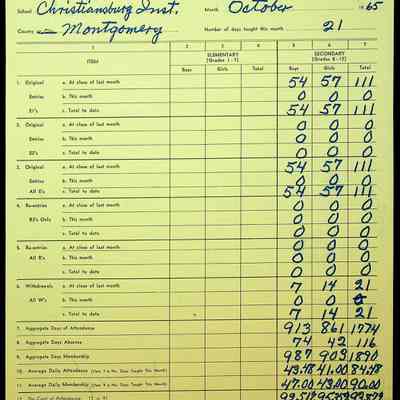 School Christiansburg Inst. Month October 1965
County Montgomery Number of days taught this month 21
1 2 3 4 5 6 7
ITEM ELEMENTARY (Grades 1-7) SECONDARY (Grades 8-12)
Boys Girls Total Boys Girls Total
1. Original a. At close of last month 54 57 111
Entries b. This month 0 0 0
E1's c. Total to date 54 57 111
2. Original a. At close of last month 0 0 0
Entries b. This month 0 0 0
E2's c. Total to date 0 0 0
3. Original a. At close of last month 54 57 111
Entries b. This month 0 0 0
All E's c. Total to date 54 57 111
4. Re-entries a. At close of last month 0 0 0
R3's Only b. This month 0 0 0
c. Total to date 0 0 0
5. Re-entries a. At close of last month 0 0 0
All R's b. This month 0 0 0
c. Total to date 0 0 0
6. Withdrawals a. At close of last month 7 14 21
All W's b. This month 0 0 0
c. Total to date 7 14 21
7. Aggregate Days of Attendance 913 861 1774
8. Aggregate Days Absence 74 42 116
9. Aggregate Days Membership 987 903 1890
10. Average Daily Attendance (Item 7 ÷ No. Days Taught This Month) 43.48 41.00 84.48
11. Average Daily Membership (Item 9 ÷ No. Days Taught This Month) 47.00 43.00 90.00
12. Per Cent of Attendance